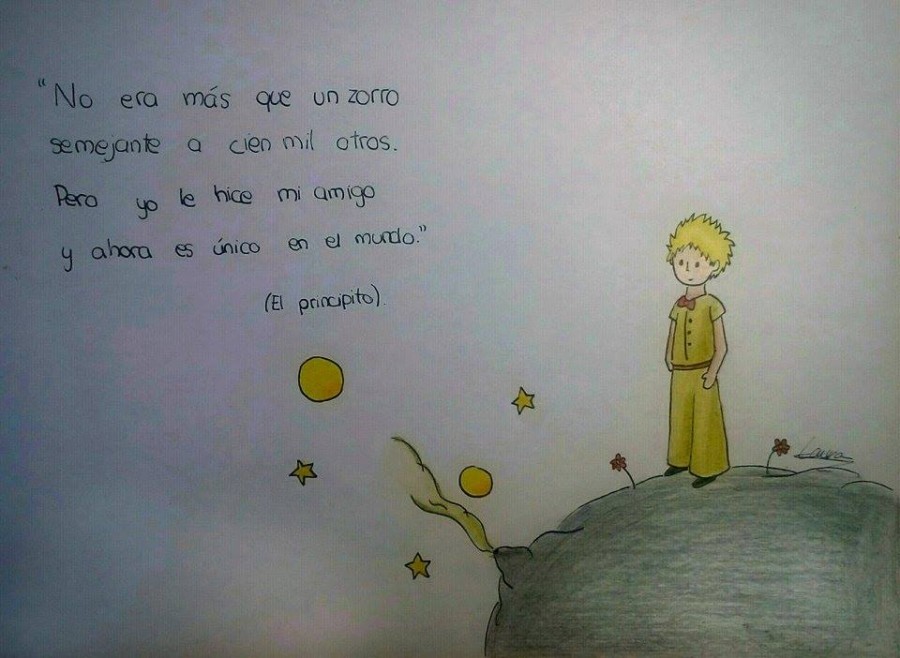 "No era más que un zorro
semejante a cien mil otros.
Pero yo le hice mi amigo
y ahora es único en el mundo."
(El principito).
Laura